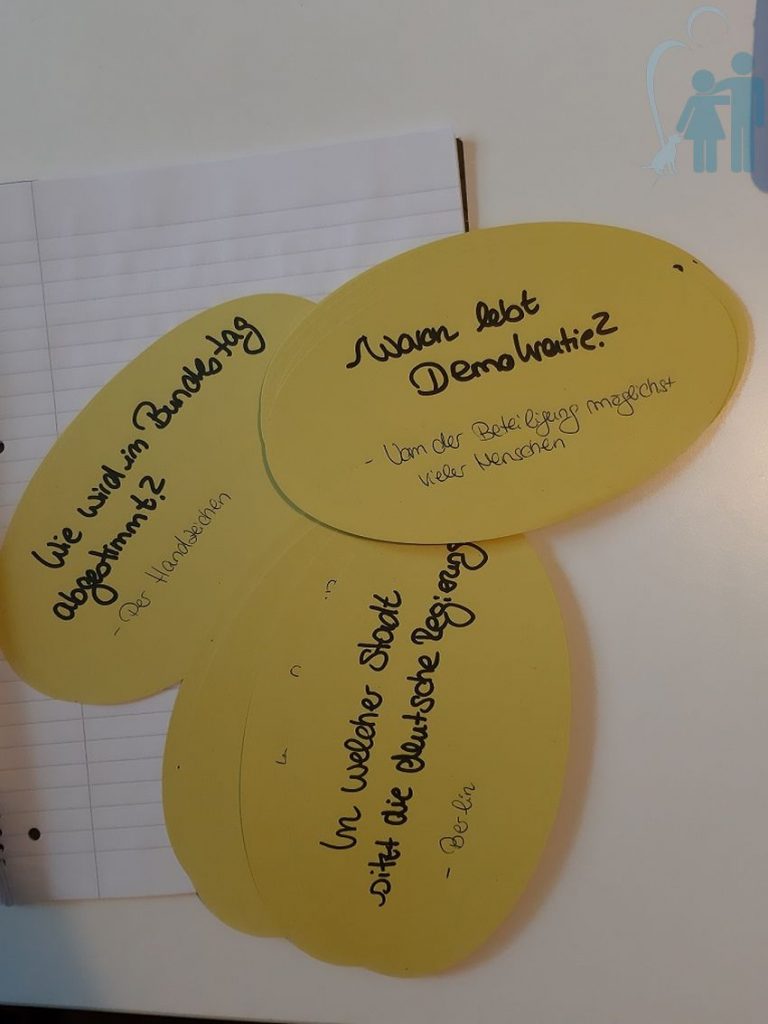 Wie wird im Bundestag
abgestimmt?
- Per Handzeichen
Wovon lebt
Demokratie?
- Von der Beteiligung möglichst
vieler Menschen
In welcher Stadt
sitzt die deutsche Regierung
- Berlin